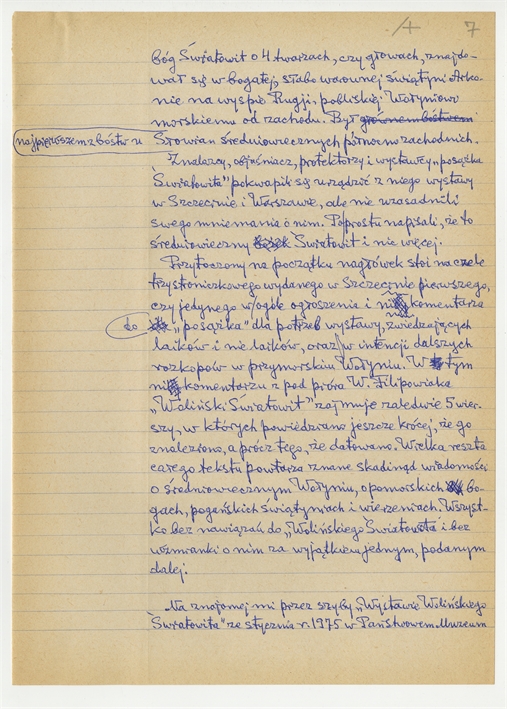 7
bóg Światowit o 4 twarzach, czy głowach, znajdo-
wał się w bogatej, słabo warownej świątyni Arko-
nie na wyspie Rugji, pobliskiej Wołyniowi
morskiemu od zachodu. Był głównem bóstwem
najpierwszem z bóstw u Słowian średniowiecznych północno zachodnich.
Znalazcy, objaśniacz, protektorzy i wystawcy „posążka
Światowita" pokwapili się urządzić z niego wystawy
w Szczecinie i Warszawie, ale nie uzasadnili
swego mniemania o nim. Poprostu napisali, że to
średniowieczny Światowit i nic więcej.
Przytoczony na początku nagłówek stoi na czele
trzystoniczkowego wydanego w Szczecinie pierwszego,
czy jedynego w ogóle ogłoszenia i komentarza
do „posążka" dla potrzeb wystawy, zwiedzających
laików i nie laików, oraz w intencji dalszych
rozkopów w przymorskiu Wołyniu. W tym
komentarzu z pod pióra W. Filipowiaka
„Woliński Światowit" zajmuje zaledwie 5 wier-
szy, w których powiedziano jeszcze krócej, że go
znaleziono, a prócz tego, że datowano. Wielka reszta
całego tekstu powtarza znane skądinąd wiadomości
o średniowiecznym Wołyniu, o pomorskich bo-
gach, pogańskich świątyniach i wierzeniach. Wszyst-
ko bez nawiązań do „Wolińskiego Światowita" i bez
wzmianki o nim za wyjątkiem jednym, podanym
dalej.
Na znajomej mi przez szyby „Wystawie Wolińskiego
Światowita" ze stycznia r. 1975 w Państwowem Muzeum